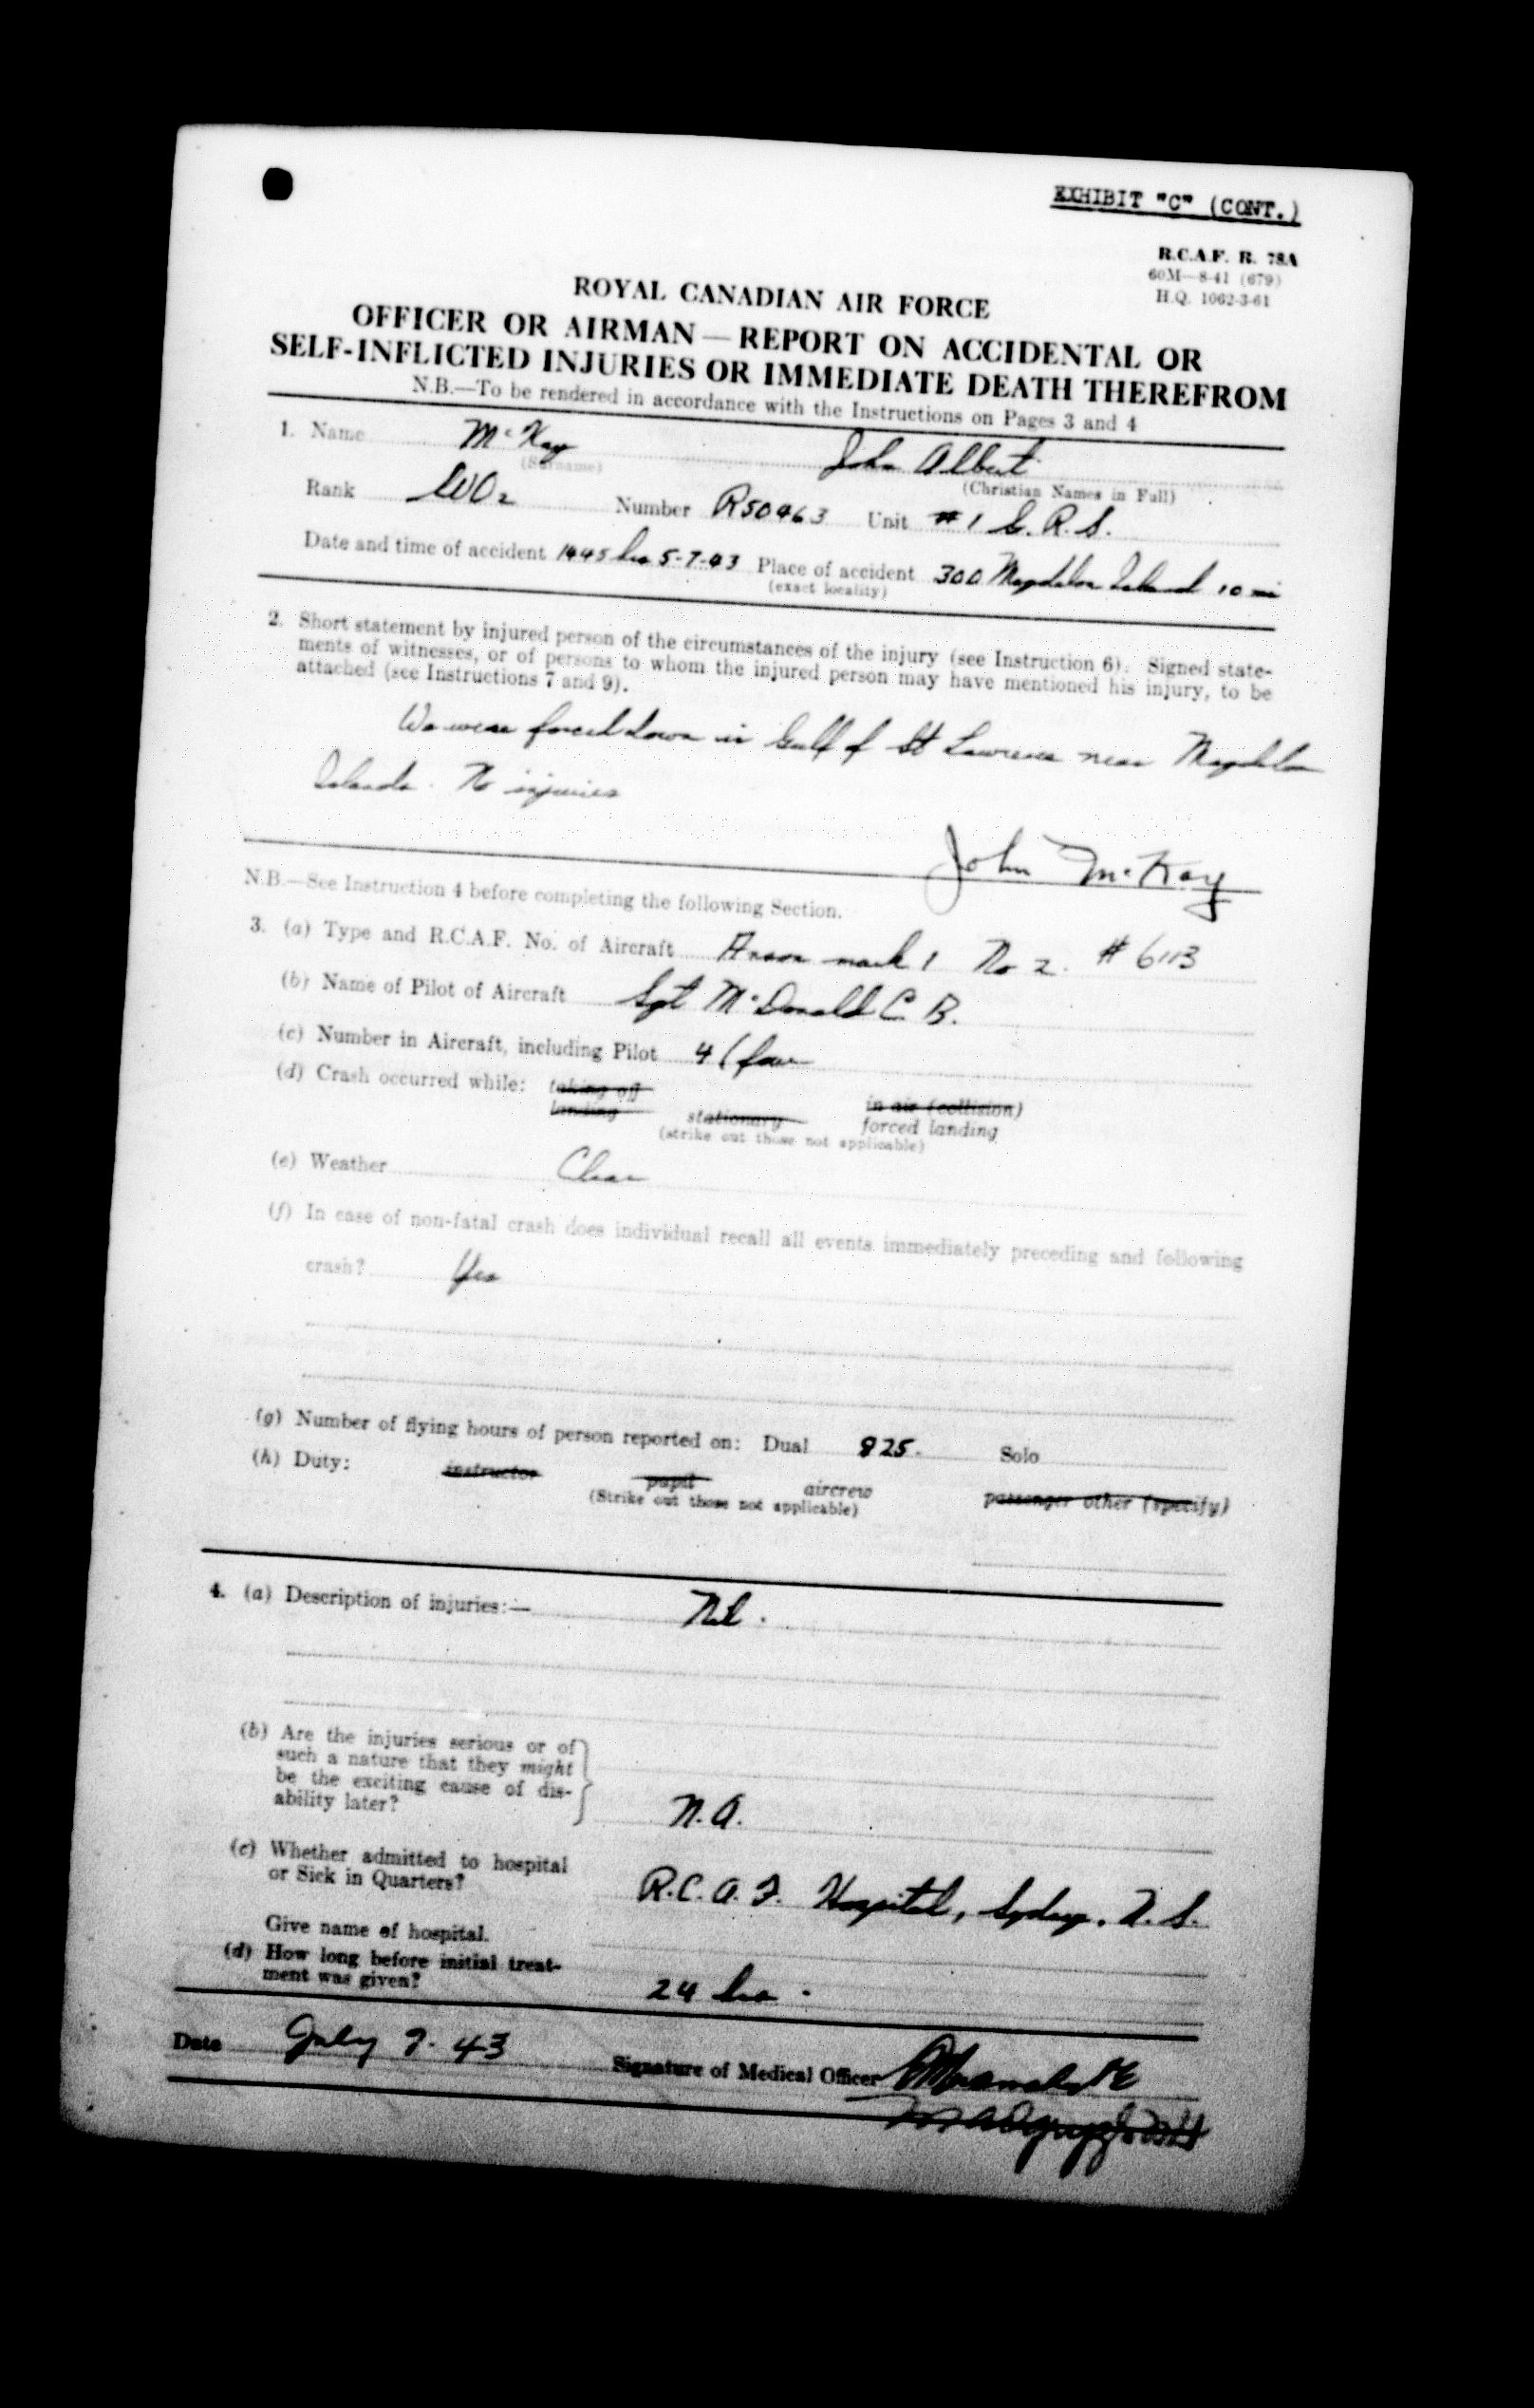 EXHIBIT "C" (CONT.)
R.C.A.F. R. 78A
60M—8-41 (679)
H.Q. 1062-3-61
ROYAL CANADIAN AIR FORCE
OFFICER OR AIRMAN—REPORT ON ACCIDENTAL OR
SELF-INFLICTED INJURIES OR IMMEDIATE DEATH THEREFROM
N.B.—To be rendered in accordance with the Instructions on Pages 3 and 4
1. Name McKay John Albert
(Surname) (Christian Names in Full)
Rank WO2 Number R50463 Unit #1 G.R.S.
Date and time of accident 1445 hrs 5-7-43 Place of accident 300 Magdalen Island 10 mi
(exact locality)
2. Short statement by injured person of the circumstances of the injury (see Instruction 6). Signed state-
ments of witnesses, or of persons to whom the injured person may have mentioned his injury, to be
attached (see Instructions 7 and 9).
We were forced down in Gulf of St Lawrence near Magdalen
Islands. No injuries
John McKay
N.B.—See Instruction 4 before completing the following Section.
3. (a) Type and R.C.A.F. No. of Aircraft Anson mark 1 No 2. # 6113
(b) Name of Pilot of Aircraft Sgt McDonald C. B.
(c) Number in Aircraft, including Pilot 4 (four
(d) Crash occurred while: taking off in air (collision)
landing stationary forced landing
(strike out those not applicable)
(e) Weather Clear
(f) In case of non-fatal crash does individual recall all events immediately preceding and following
crash? Yes
(g) Number of flying hours of person reported on: Dual 825. Solo
(h) Duty: instructor pupil aircrew passenger other (specify)
(Strike out those not applicable)
4. (a) Description of injuries:— Nil.
(b) Are the injuries serious or of
such a nature that they might
be the exciting cause of dis-
ability later? N.A.
(c) Whether admitted to hospital
or Sick in Quarters? R.C.A.F. Hospital, Sydney, N.S.
Give name of hospital.
(d) How long before initial treat-
ment was given? 24 hrs.
Date July 9. 43 Signature of Medical Officer